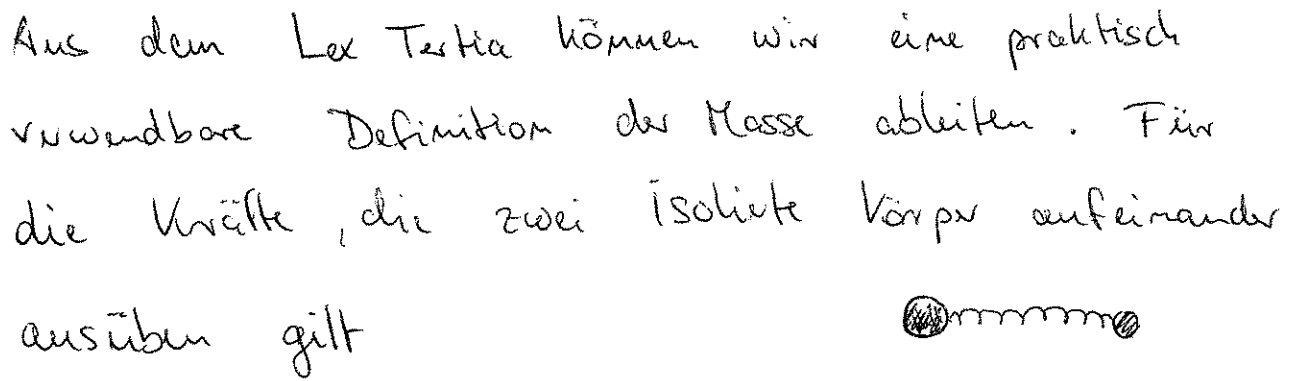 Aus dem Lex Tertia können wir eine praktisch
verwendbare Definition der Masse ableiten. Für
die Kräfte, die zwei isolierte Körper aufeinander
ausüben gilt